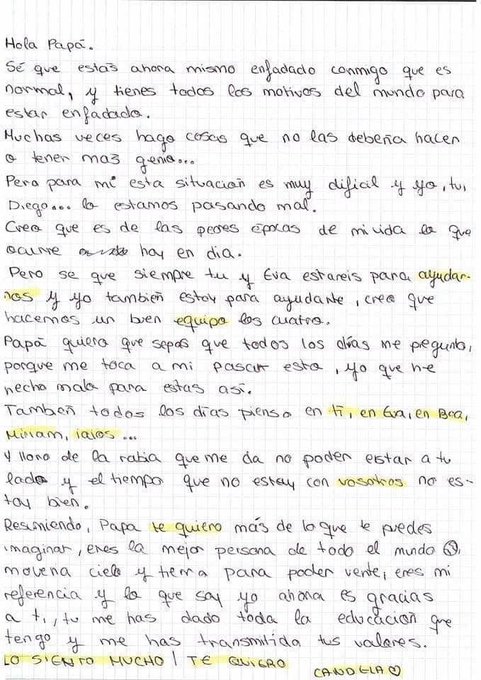 Hola Papá.
Sé que estás ahora mismo enfadado conmigo que es
normal, y tienes todos los motivos del mundo para
estar enfadado.
Muchas veces hago cosas que no las debería hacer
o tener mas genio...
Pero para mí esta situación es muy dificil y yo, tu,
Diego... lo estamos pasando mal.
Creo que es de las peores épocas de mi vida lo que
ocurre hoy en dia.
Pero se que siempre tu y Eva estareis para ayudar-
nos y yo también estoy para ayudarte, creo que
hacemos un buen equipo los cuatro.
Papá quiero que sepas que todos los días me pregunto,
porque me toca a mi pasar esto, yo que he
hecho malo para estas así.
También todos los días pienso en ti, en Eva, en Bea,
Miriam, iaios ...
Y lloro de la rabia que me da no poder estar a tu
lado y el tiempo que no estoy con vosotros no es-
toy bien.
Resumiendo, Papa te quiero más de lo que te puedes
imaginar, eres la mejor persona de todo el mundo
movería cielo y tierra para poder verte, eres mi
referencia y lo que soy yo ahora es gracias
a ti, tu me has dado toda la educación que
tengo y me has transmitido tus valores.
LO SIENTO MUCHO! TE QUIERO
CANDELA♡